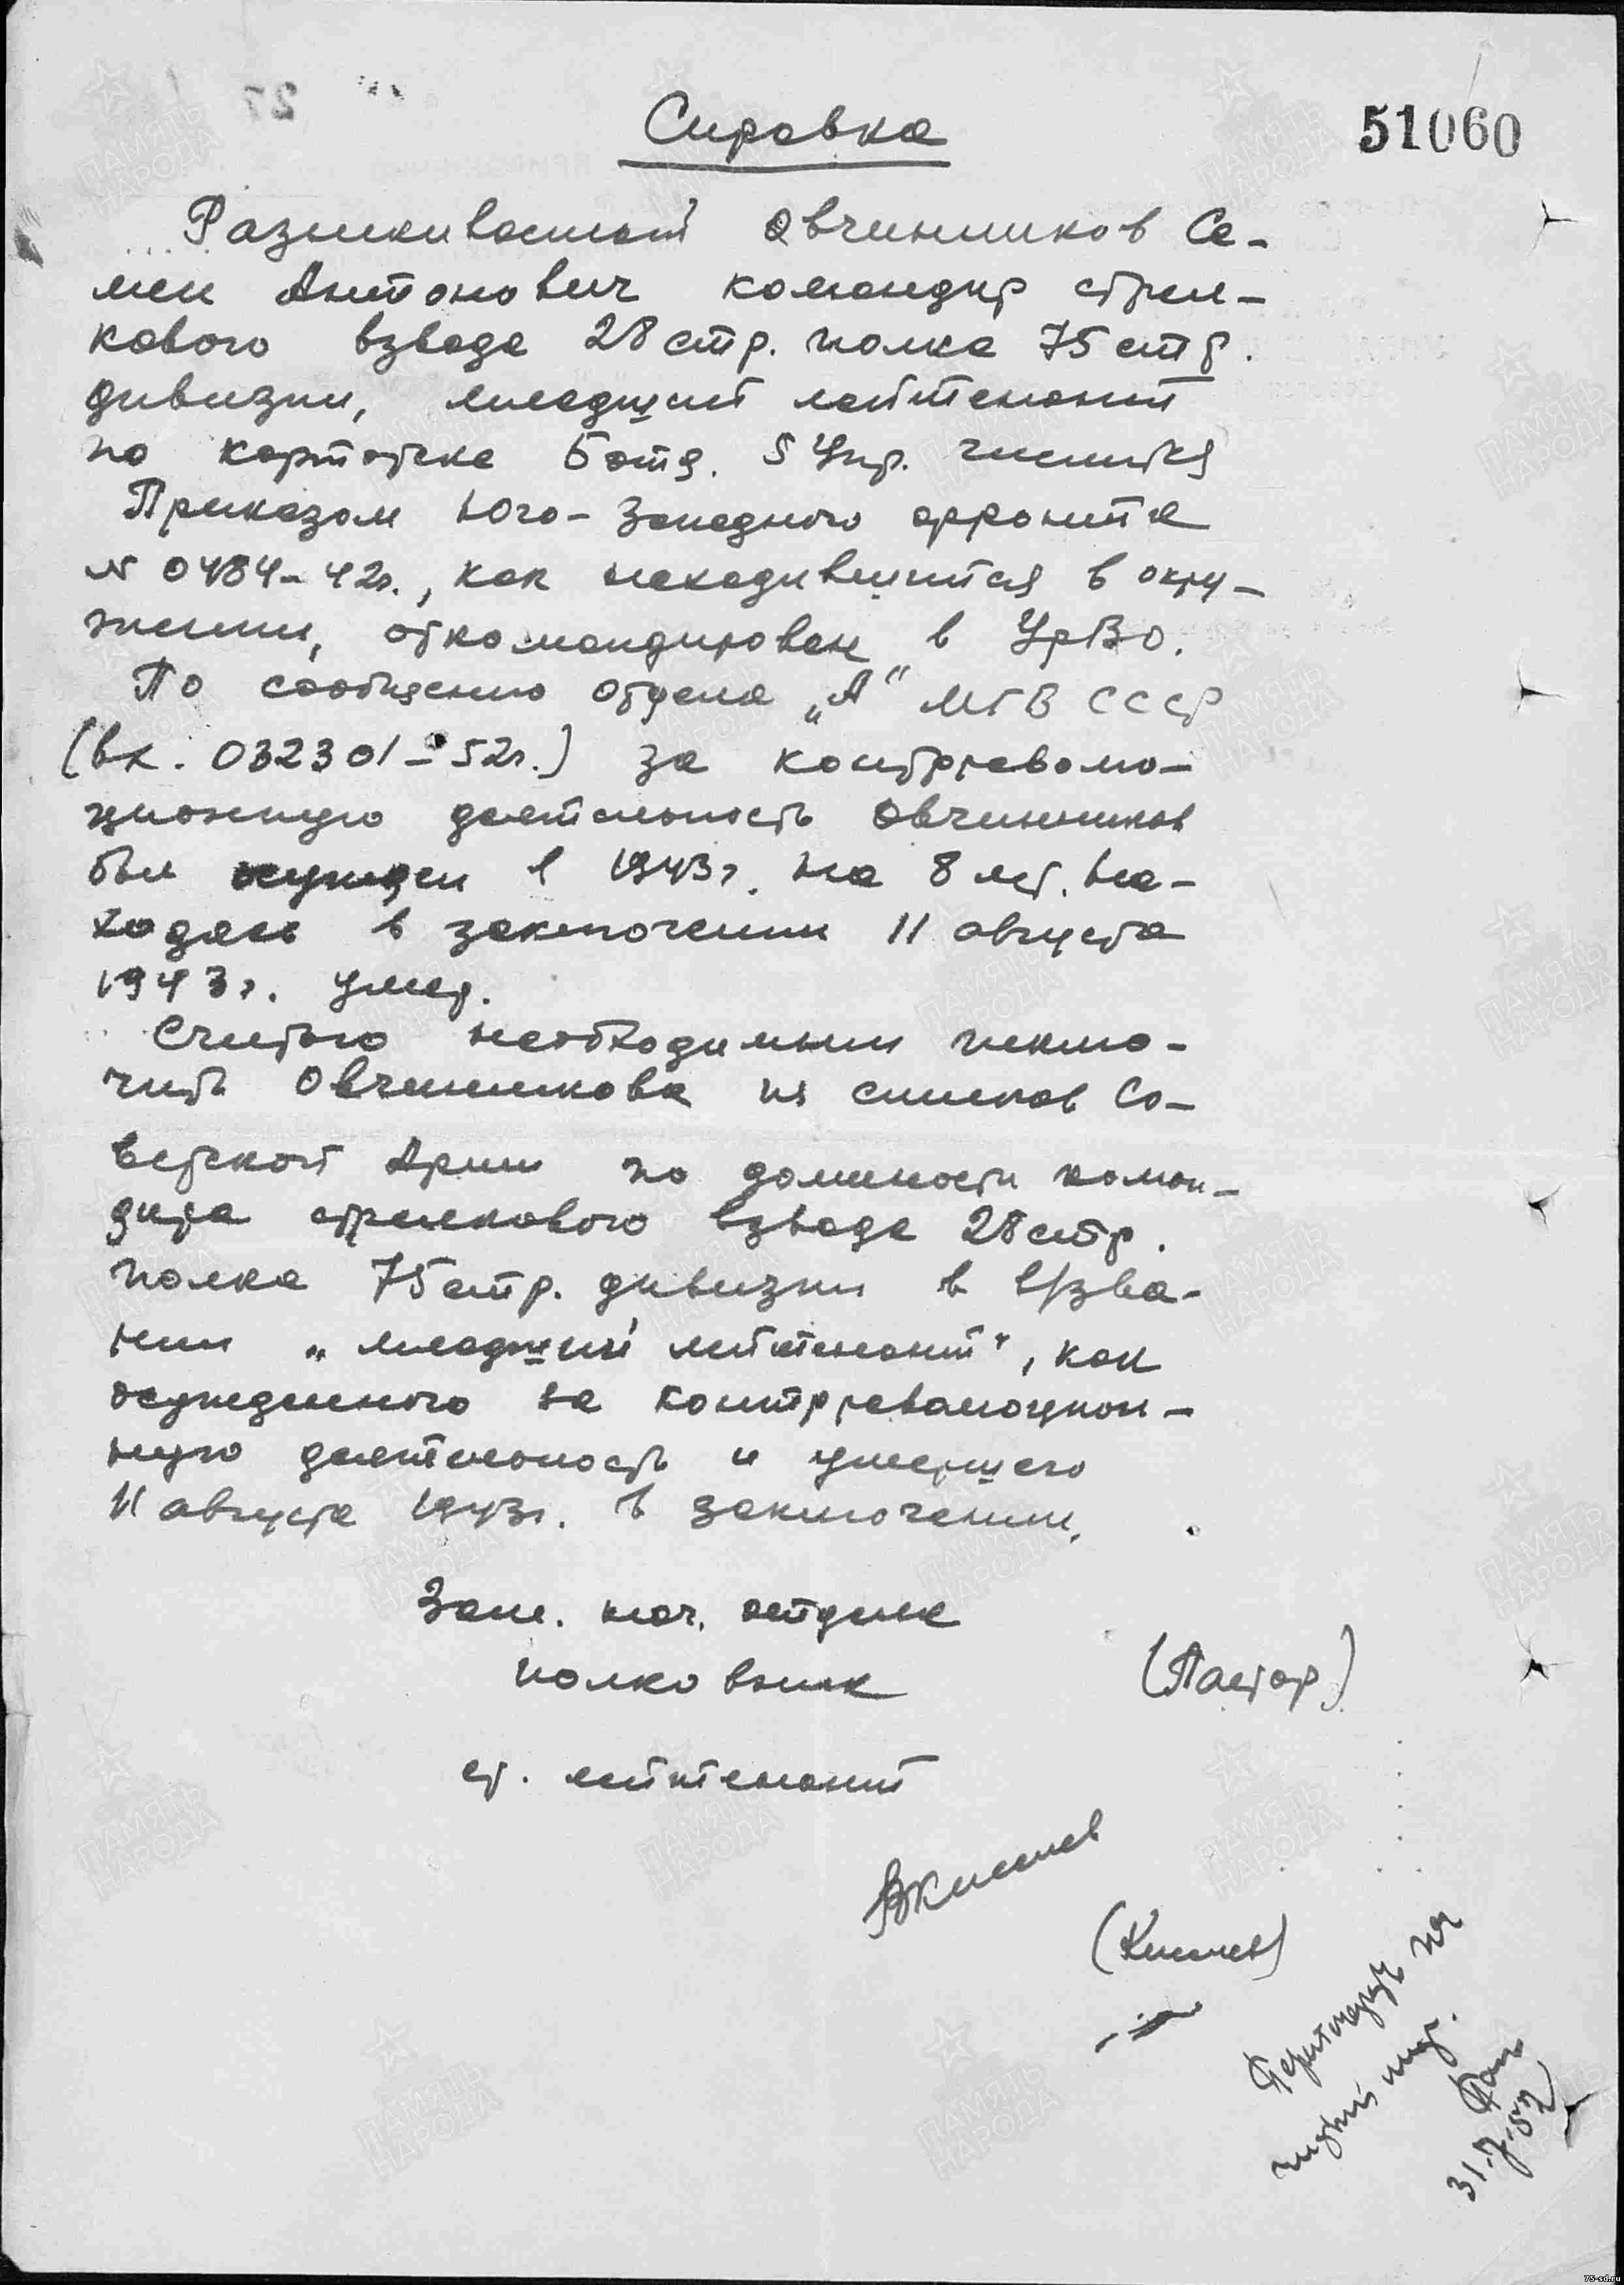 Справка
51060
Разыскиваемый Овчинников Се-
мен Антонович командир стрел-
кового взвода 28 стр. полка 75 стр.
дивизии, младший лейтенант
по картотеке 5 отд. 5 Упр. числится
Приказом Юго-Западного фронта
№ 0484-42г., как находившийся в окру-
жении, откомандирован в УрВО.
По сообщению отдела „А" МГБ СССР
(вх. 032301-52г.) за контрреволю-
ционную деятельность Овчинников
был осужден в 1943г. на 8 лет. На-
ходясь в заключении 11 августа
1943г. умер.
Считаю необходимым исклю-
чить Овчинникова из списков Со-
ветской Армии по должности коман-
дира стрелкового взвода 28 стр.
полка 75 стр. дивизии в в/зва-
нии „младший лейтенант", как
осужденного за контрреволюцион-
ную деятельность и умершего
11 августа 1943г. в заключении.
Зам. нач. отдела
полковник (Пастор)
ст. лейтенант
31.7.52
ПАМЯТЬ НАРОДА
75-sd.ru